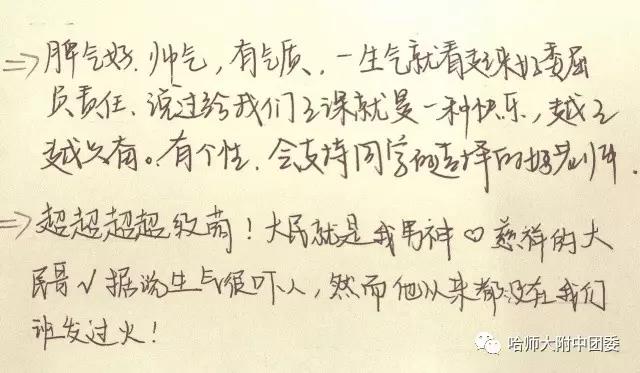 ⇒脾气好、帅气，有气质，一生气就看起来好委屈
负责任、说过给我们上课就是一种快乐，越上
越兴奋。有个性、会支持同学的选择的好老师。
⇒超超超超级萌！大民就是我男神♡慈祥的大
民哥√据说生气很吓人，然而他从来都没在我们
班发过火！
哈师大附中团委